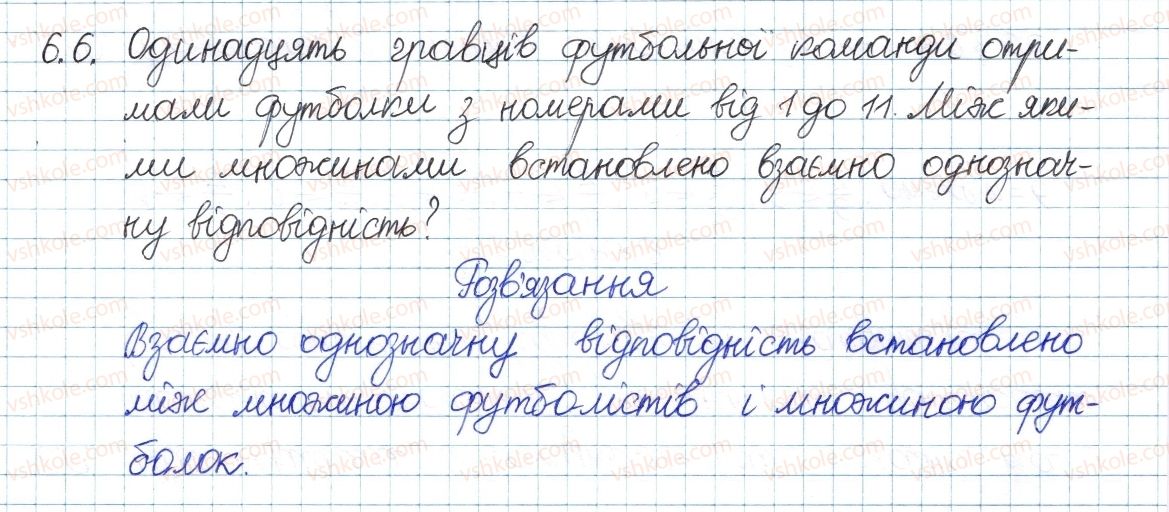 6.6. Одинадцять гравців футбольної команди отри-
мали футболки з номерами від 1 до 11. Між яки-
ми множинами встановлено взаємно однознач-
ну відповідність?
Розв'язання
Взаємно однозначну відповідність встановлено
між множиною футболістів і множиною фут-
болок.